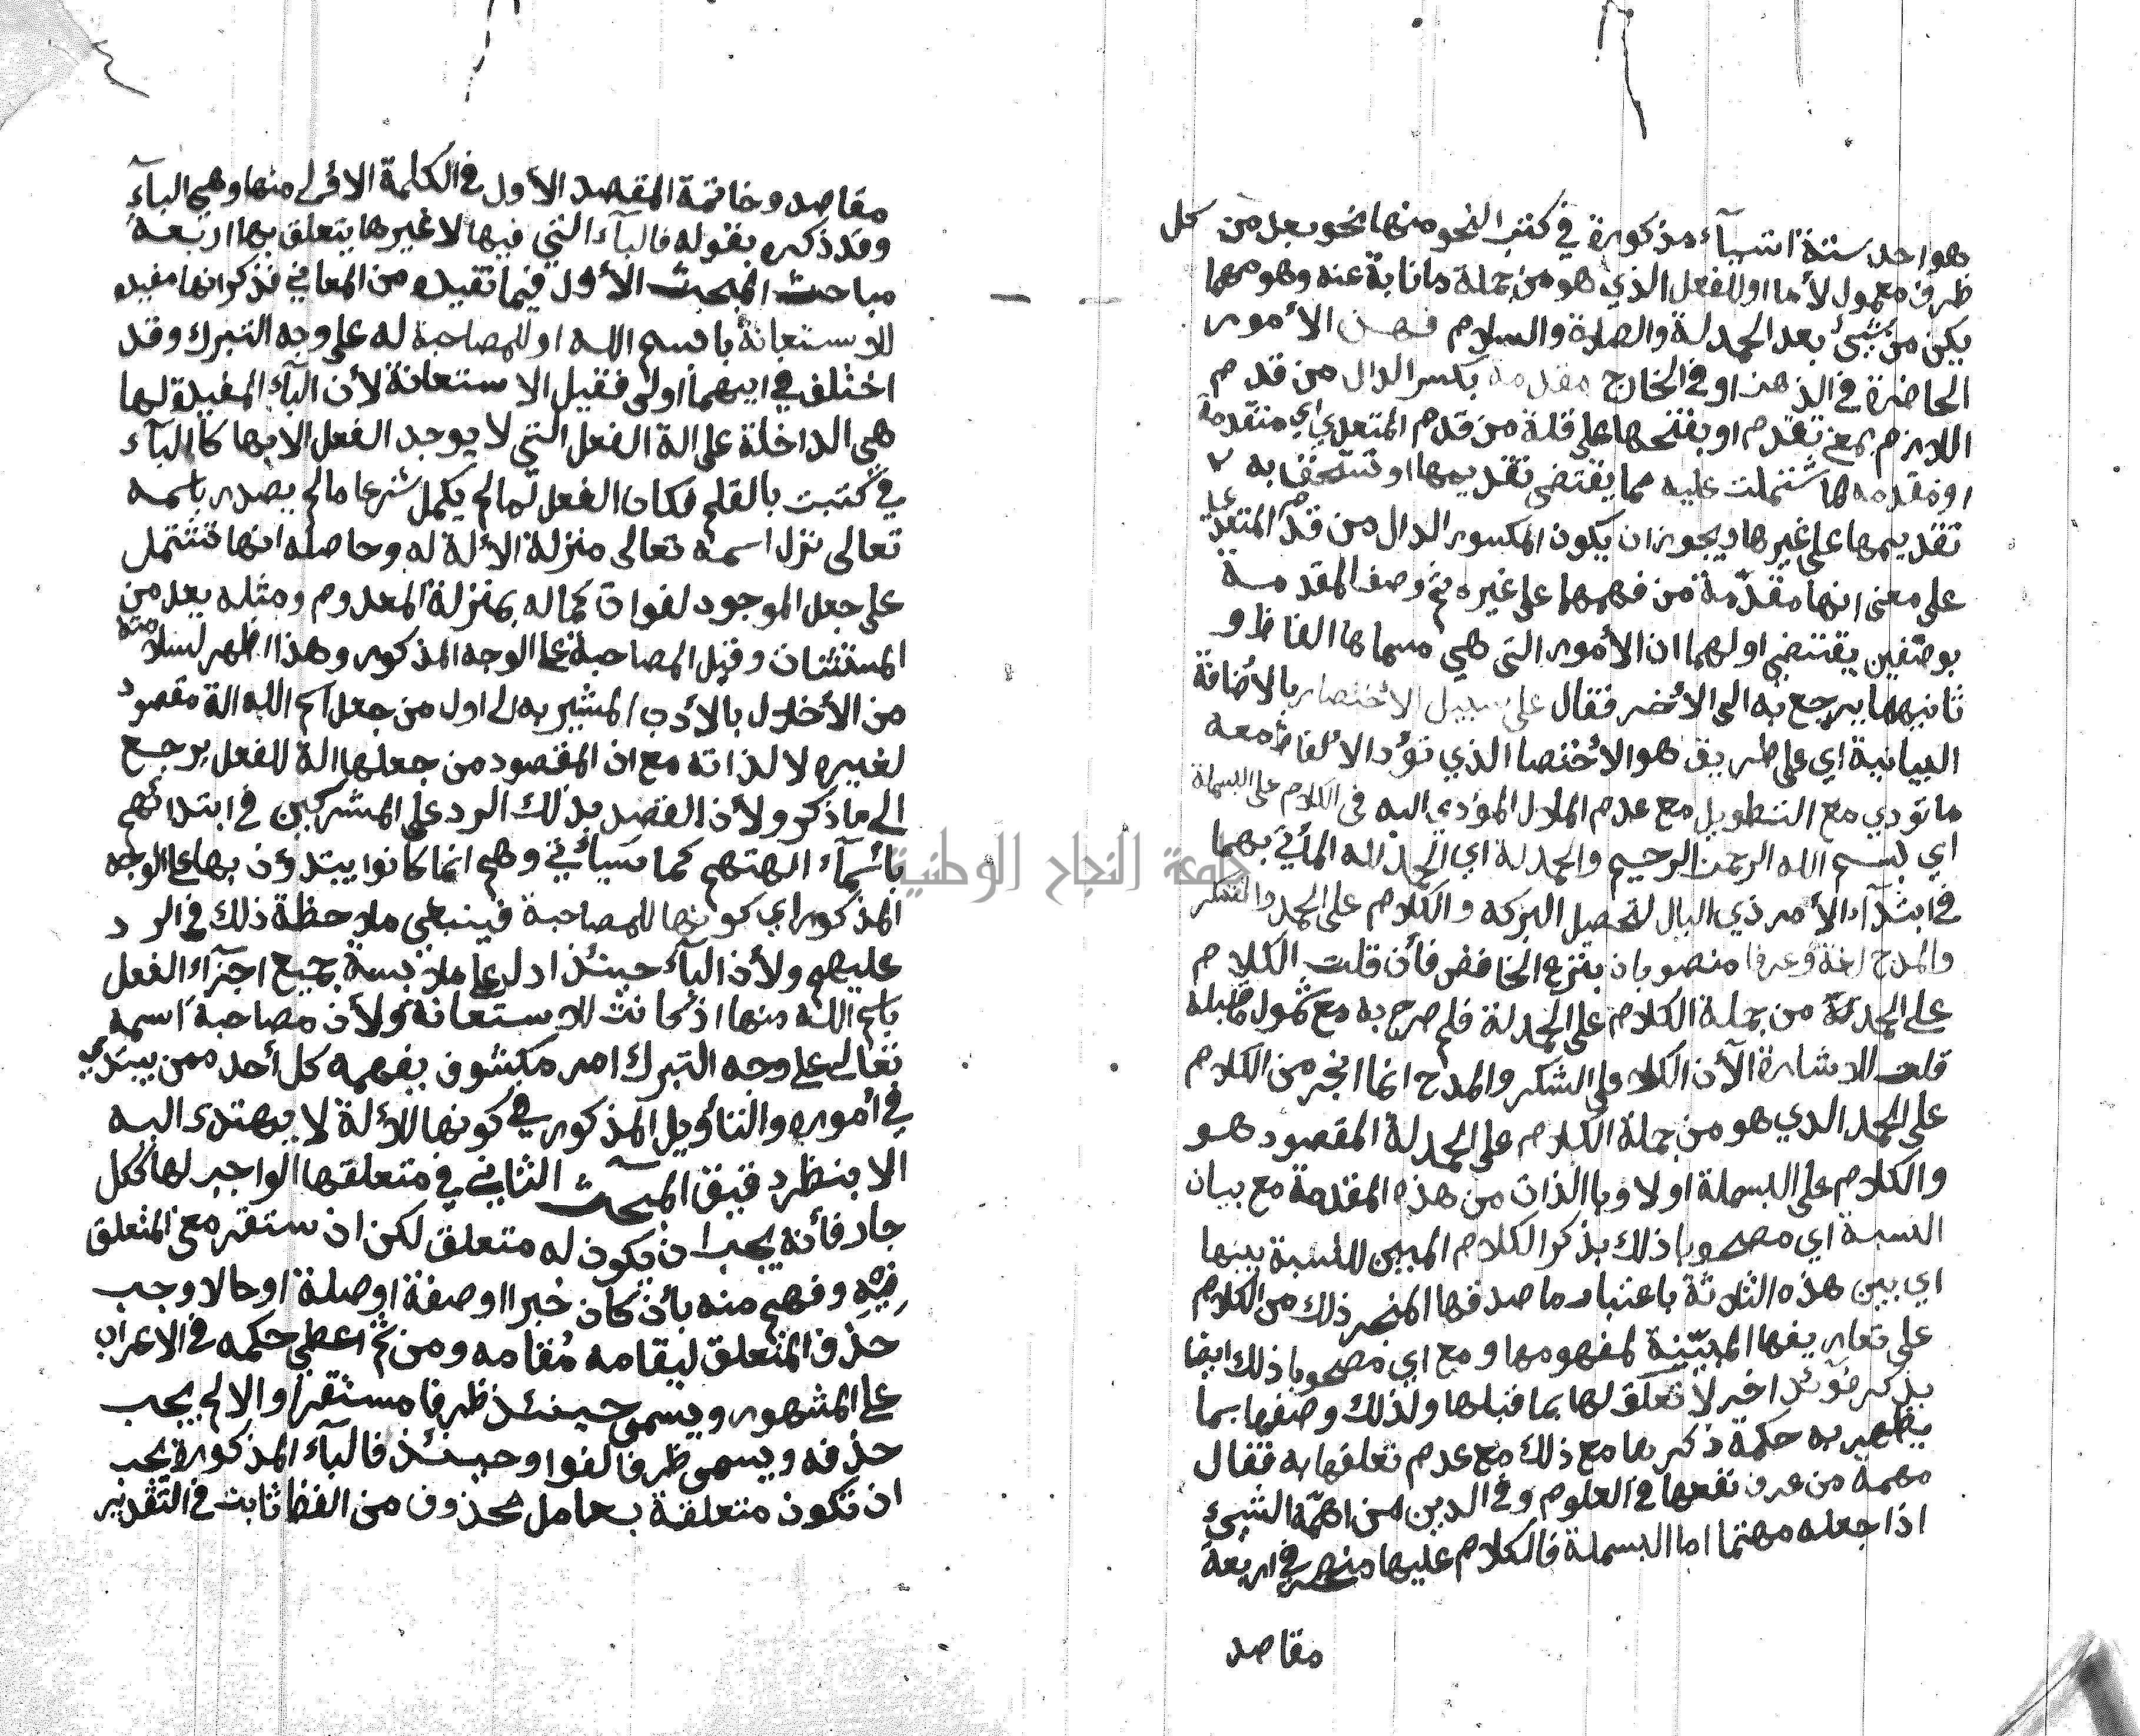 هو احد ستة اشيآء مذكورة في كتب النحو منها نحو بعد من كل
ظرف معمول لأما او للفعل الذي هو من جملة ما نابة عنه وهو مهما
يكن من شيئ بعد الحمدلة والصلاة والسلام فهـذ الأمور
الحاضرة في الذهن او في الخارج مقدمة بكسر الدال من قدم
اللازم بمعنى تقدم او بفتحها على قلة من قدم المتعدي اي متقدمة
او مقدمه لما اشتملت عليه مما يقتضى تقديمها او تستحق به
تقديمها على غيرها ويجوز ان يكون المكسور الدال من قدم المتعدي
على معنى انها مقدّمة من فهمها على غيره ثم وصف المقدمة
بوصفين يقتضي اولهما ان الأمور التي هي مسماها الفاظ و
ثانيهما يرجع به الى الأخر فقال على سبيل الأختصار بالأضافة
البيانية اي على طريق هو الأختصا الذي تؤد الألفاظ معه
ما تودي مع التطويل مع عدم الملال المؤدي اليه في الكلام على البسملة
اي بسم الله الرحمن الرحيم والحمدلة اي الحمد لله المأتي بهما
في ابتدآء الأمر ذي البال لتحصيل البركه والكلام على الحمد والشكر
والمدح لغة وعرفا منصوبان بنزع الخافض فأن قلت الكلام
على الحمد لغة من جملة الكلام على الحمدلة فلم صرح به مع شمول ما قبله
قلت للاشارة الأن الكلام على الشكر والمدح انما انجر من الكلام
على الحمد الدي هو من جملة الكلام على الحمدلة المقصود هو
والكلام على البسملة اولا وبا الذات من هذه المقدمة مع بيان
النسبة اي مصحوبا ذلك بذكر الكلام المبين للنسبة بينها
اي بين هذه الثلاثة باعتبار ما صدقها المنجر ذلك من الكلام
على تعاريفها المبيّنة لمفهومها ومع اي مصحوبا ذلك ايضا
بذكر فوآئد اخر لا تعلق لها بما قبلها ولذلك وصفها بما
يظهر به حكمة ذكرها مع ذلك مع عدم تعلقها به فقال
مهمة من عرف نفعها في العلوم وفي الدين من اهمّه الشيئ
اذا جعله مهتما اما البسملة فالكلام عليها منحصر في اربعة
مقاصد
مقاصد وخاتمة المقصد الأول في الكلمة الاولى منها وهي البآء
وقد ذكره بقوله فالبآء التي فيها لا غيرها يتعلق بها اربعة
مباحث المبحث الأول فيما تفيده من المعاني فذكر انها مفيده
للاستعانة باسم الله او للمصاحبة له على وجه التبرك وقد
اختلف في ايهما اولى فقيل الاستعانة لأن البآء المفيدة لها
هي الداخلة على الة الفعل التي لا يوجد الفعل الا بها كالبآء
في كتبت بالقلم فكان الفعل لما لم يكمل شرعا مالم يصدر باسمه
تعالى نزل اسمه تعالى منزلة الألة له وحاصله انها تشتمل
على جعل الموجود لفوات كماله بمنزلة المعدوم ومثله يعد من
المستثنات وقيل المصاحبة على الوجه المذكور وهذا اظهر لسلامته
من الأخلال بالأدب المشير به اولى اول من جعل اسم الله الة مقصود
لغيره لا لذاته مع ان المقصود من جعلها الة للفعل يرجع
الى ما ذكر ولأن القصد بذلك الرد على المشركين في ابتدائهم
بأسمآء الهتهم كما سيأتي وهم انما كانوا يبتدؤن بها على الوجه
المذكور اي كونها للمصاحبة فينبغي ملاحظة ذلك في الرد
عليهم ولأن البآء حينئذ ادل على ملابسة جميع اجزآء الفعل
باسم الله منها اذ كانت للاستعانة ولأن مصاحبة اسمه
تعالى على وجه التبرك امر مكشوف يفهمه كل أحد ممن يبتدي
في أموره والتأويل المذكور في كونها للألة لا يهتدى اليه
الا بنظر دقيق المبحث الثاني في متعلقها الواجب لها ككل
جار فأنه يجب ان يكون له متعلق لكن ان ستقر معنى المتعلق
فيه وفهم منه بأن كان خبرا او صفة او صلة او حالا وجب
حذف المتعلق ليقامه مُقامه ومن ثم اعطي حكمه في الاعراب
على المشهور ويسمى حينئذ ظرفا مستقرا والا لم يجب
حذفه ويسمى ظرفا لغوا وحينئذ فالبآء المذكورة يجب
ان تكون متعلقة بعامل محذوف من الفظ ثابت في التقدير
جامعة النجاح الوطنية